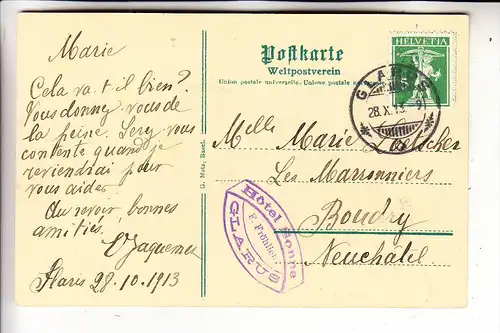 Marie
Cela va-t-il bien?
Vous donnez-vous de
la peine. Serez-vous
contente quand je
reviendrai pour
vous aider
Au revoir, bonnes
amitiés.
Glaris 28.10.1913
G. Metz, Basel.
Postkarte
Weltpostverein
Union postale universelle. Unione postale
HELVETIA
GLARUS
28.X.13
Melle Marie
Les Marronniers
Boudry
Neuchatel
Hôtel Sonne
GLARUS